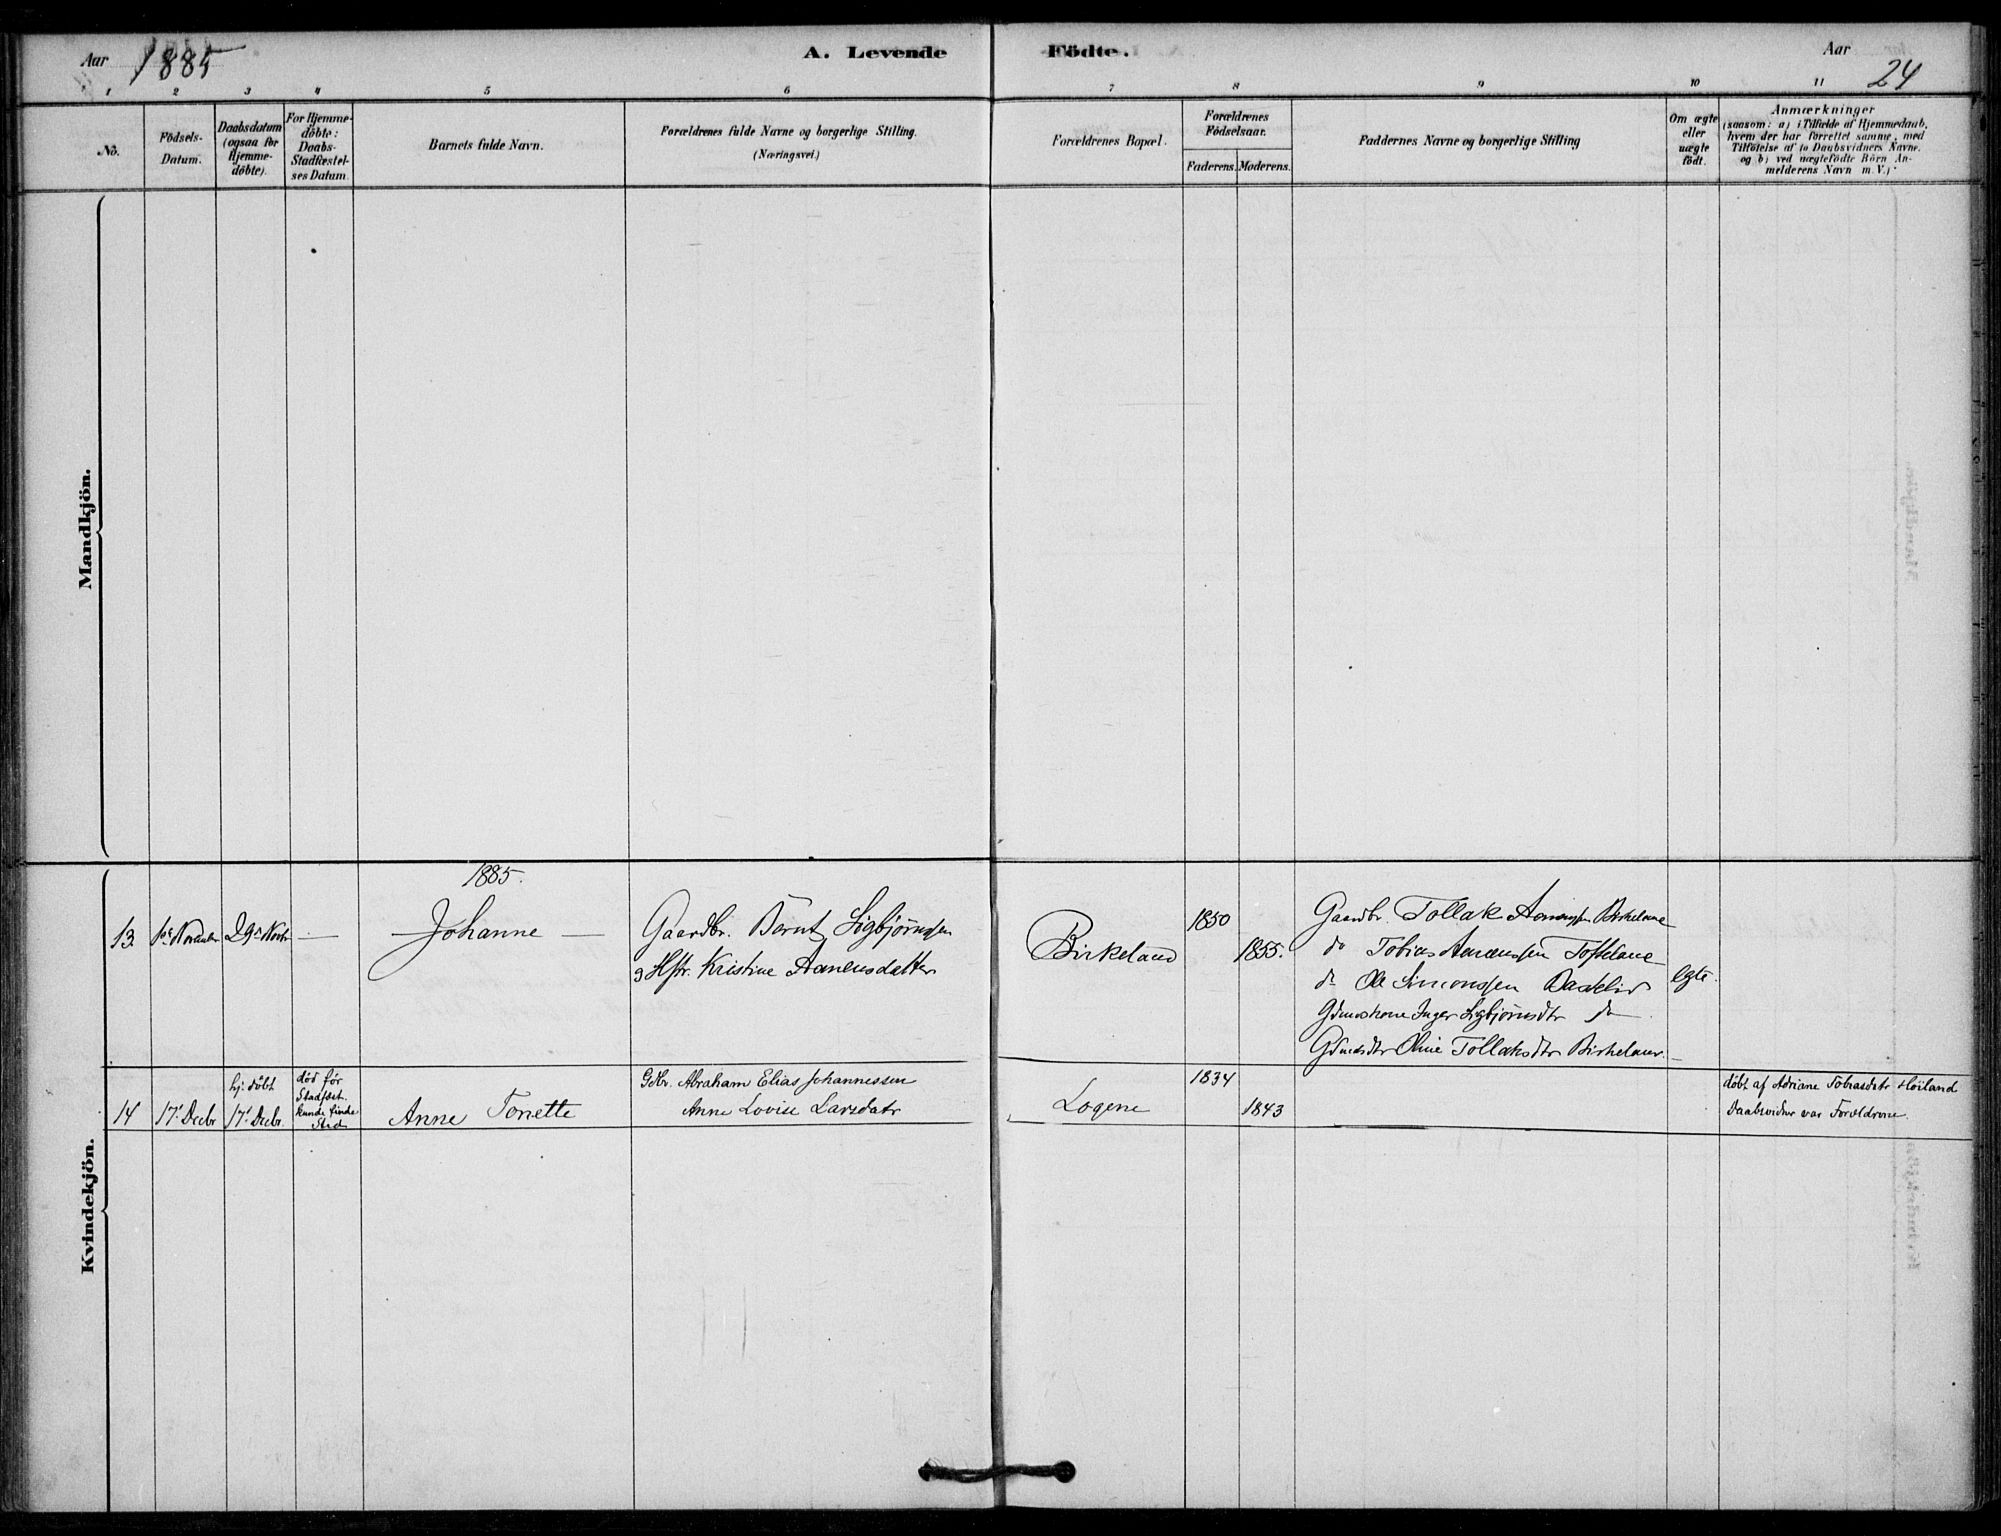 Aar 1885 A. Levende Födte. Aar 24
1 2 3 4 5 6 7 8 9 10 11
No. Födsels-Datum. Daabsdatum (ogsaa for Hjemme-döbte). For Hjemme-döbte: Daabs-Stadfæstel-ses Datum. Barnets fulde Navn. Forældrenes fulde Navne og borgerlige Stilling. (Næringsvei.) Forældrenes Bopæl. Forældrenes Födselsaar. Faderens. Moderens. Faddernes Navne og borgerlige Stilling Om ægte eller uægte födt. Anmærkninger
(saasom: a) i Tilfælde af Hjemmedaab,
hvem der har forrettet samme, med
Tilföielse af to Daabsvidners Navne.
og b) ved uægtefödte Börn An-
melderens Navn m. V.)
Mandkjön.
Kvindekjön.
1885.
13. 1ste November 29de Novbr — Johanne —
Gaardbr. Bernt Sigbjörnssen
og Hstr. Kristine Aanensdatter
Birkeland 1850 1855.
Gaardbr. Tollak Aanenssen Birkeland
do Tobias Aanenssen
do Ole Simonssen
Gdmdskone Inger Sigbjörnsdtr do
Gdmdsdtr Oline Tollaksdtr Birkeland
egte.
14 17de Decbr
hj. döbt
17de Decbr.
död för
Stadfæst.
kunde finde
Sted
Anne Tonette
Gdbr. Abraham Elias Johannessen
Anne Lovise Larsdatr
Logene 1834 1843
döbt af Adriane Tobiasdatr Höiland
Daabsvidner var Forældrene.